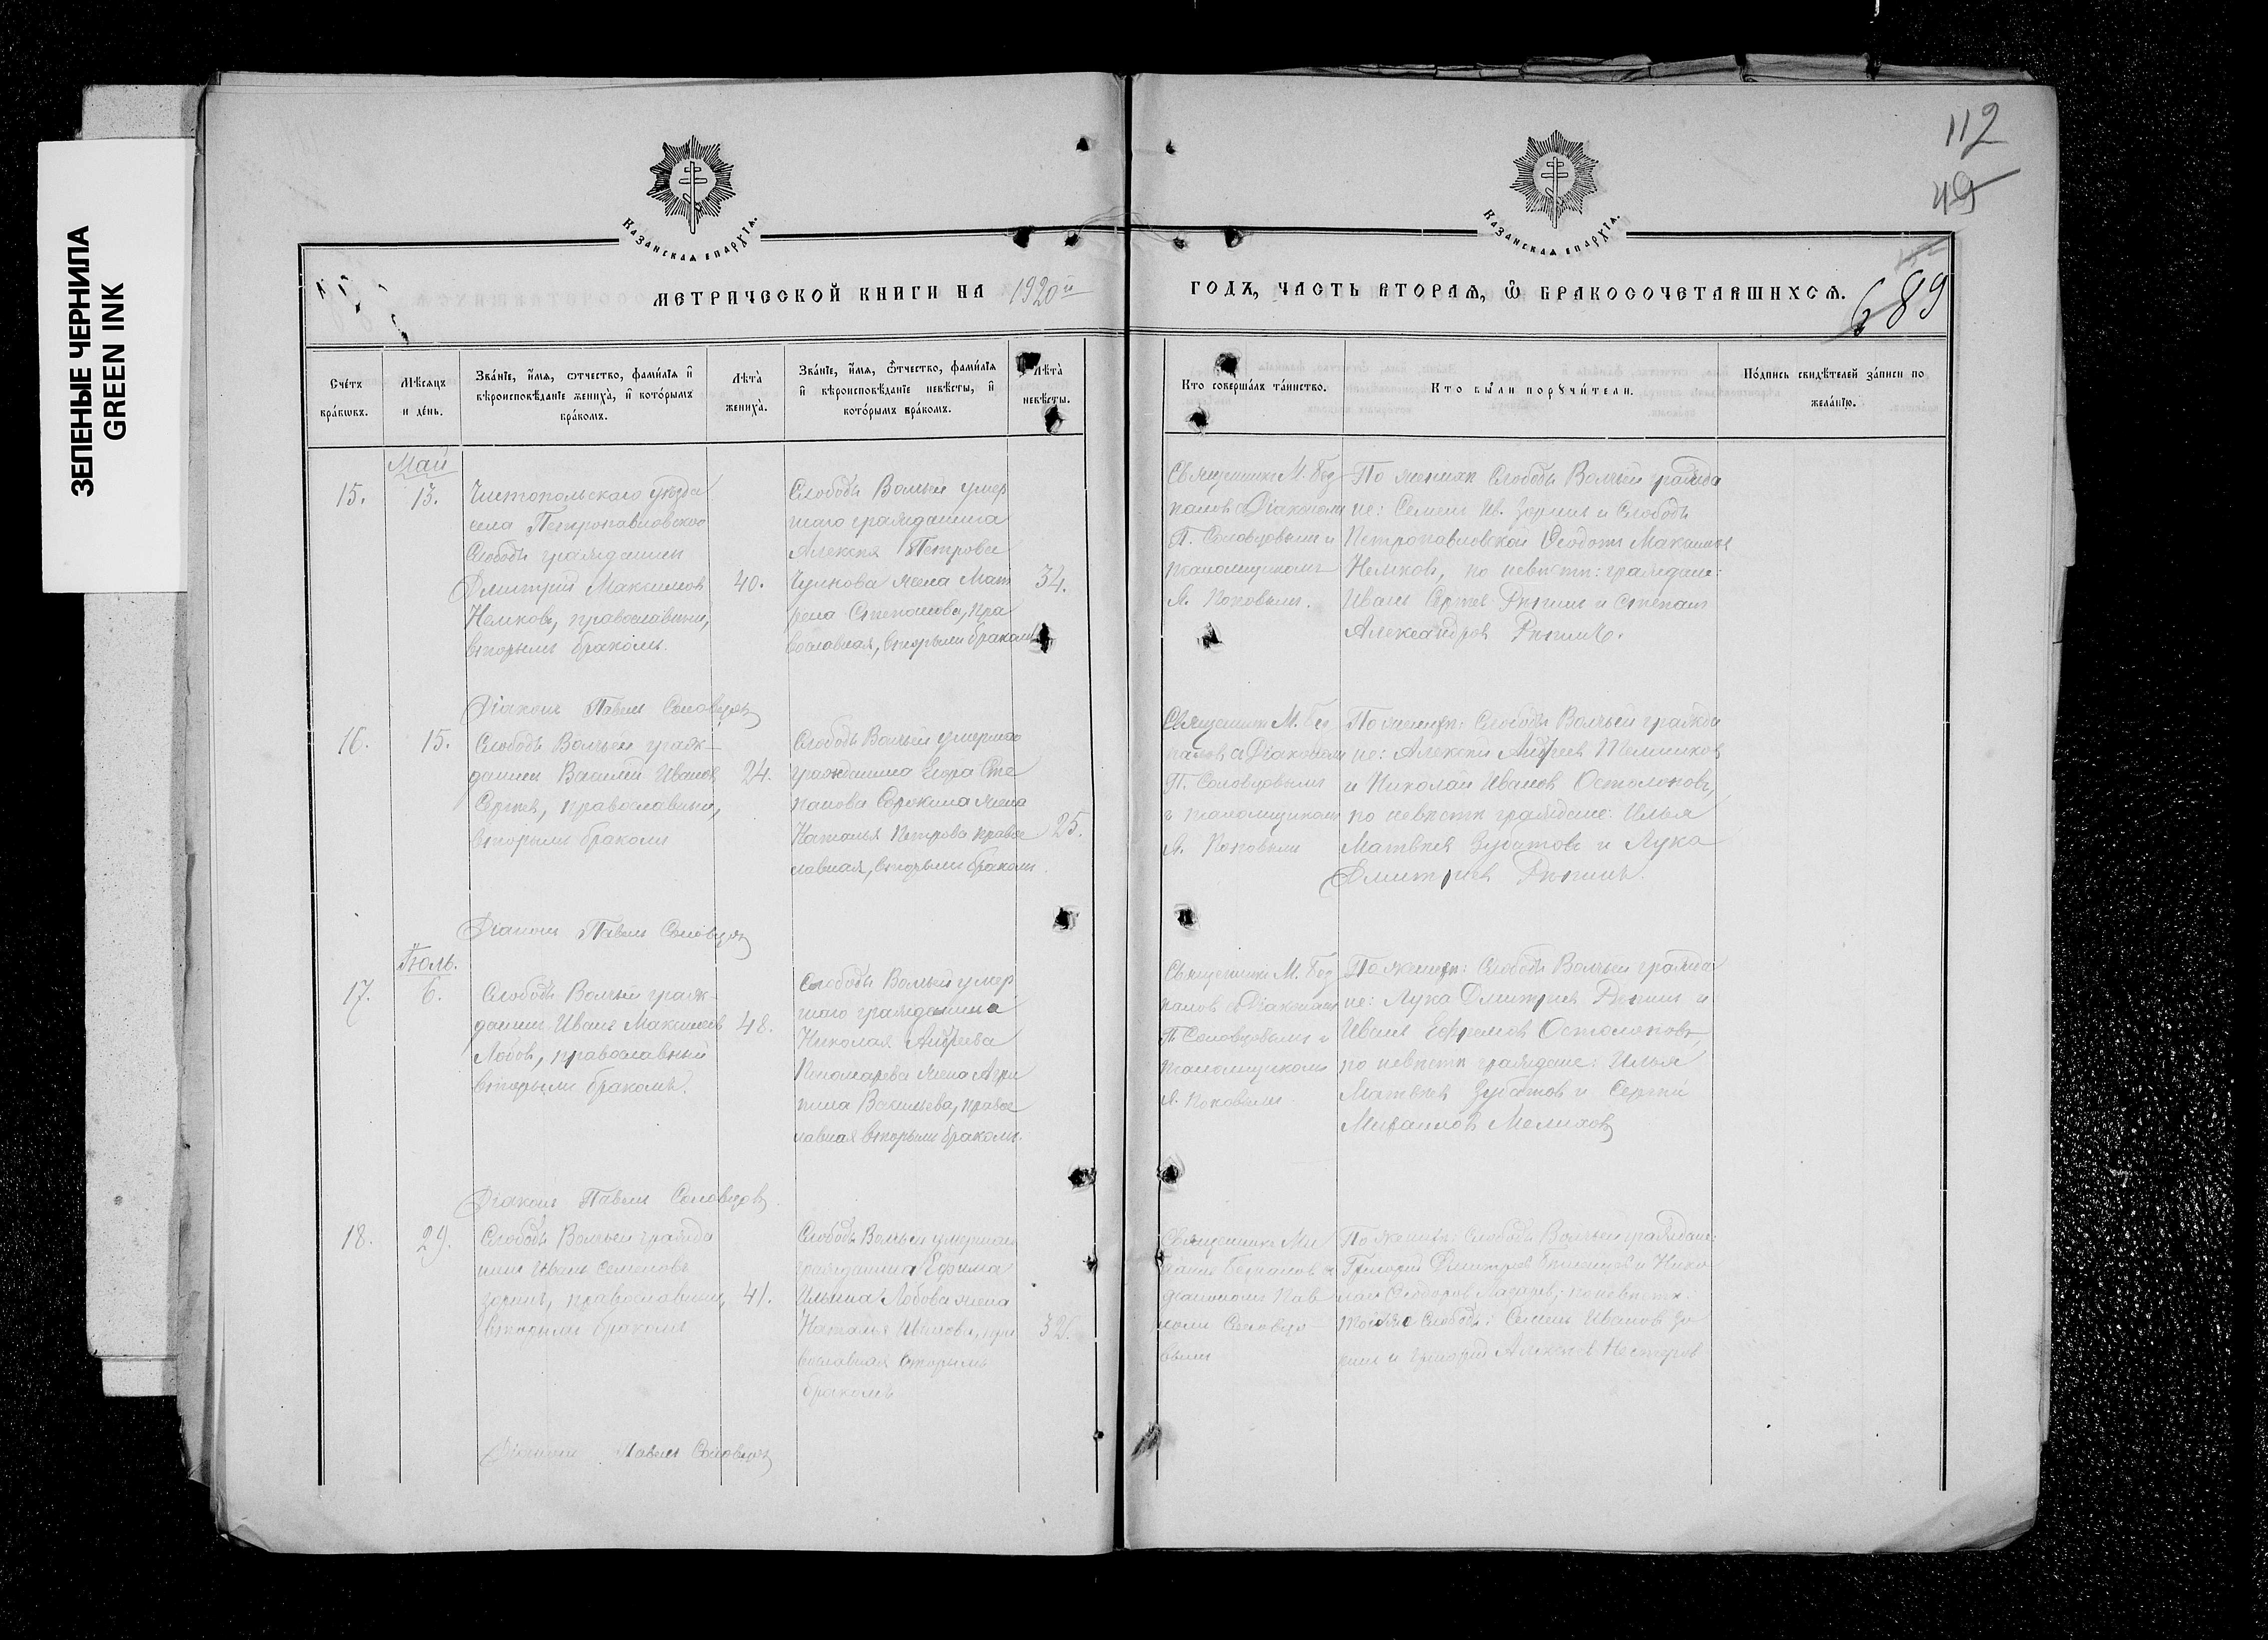 ЗЕЛЕНЫЕ ЧЕРНИЛА
GREEN INK
112
49
689
Казанская епархїѧ.
Казанская епархїѧ.
МЕТРИЧЕСКОЙ КНИГИ НА 1920й
ГОДЪ, ЧАСТЬ ВТОРАѦ, Ѿ БРАКОСОЧЕТАВШИХСѦ.
Сче́тъ бра́кωвъ.
Мѣ́сѧцъ и де́нь.
Зва́нїе, и҆́мѧ, ѻтчество, фами́лїѧ и҆ вѣроисповѣ́данїе жениха̀, и҆ кото́рымъ бра́комъ.
Лѣта̀ жениха̀.
Зва́нїе, и҆́мѧ, ѻ҆́тчество, фами́лїѧ и҆ вѣроисповѣ́данїе невѣ́сты, и҆ кото́рымъ бра́комъ.
Лѣта̀ невѣ́сты.
Кто соверша́лъ та́инство.
Кто бы́ли порꙋчи́тели.
По́дпись свидѣ́телей за́писи по жела́нїю.
Май
15.
13.
Чистопольскаго уѣзда
села Петропавловской
Слободы гражданинъ
Дмитрій Максимов
Немковъ, православный,
вторымъ бракомъ.
40.
Слободы Волчьей умер
шаго гражданина
Алексѣя Петрова
Чулкова жена Мат
рена Степанова, пра
вославная, вторымъ бракомъ
34.
Священникъ М. Без
палов с Діакономъ
П. Соловцовымъ и
псаломщикомъ
А. Поповымъ.
По женихѣ Слободы Волчьей гражда
не: Семенъ Ив. Зоринъ и Слободы
Петропавловской Ѳеодотъ Максимов
Немковъ, по невѣстѣ: граждане:
Иванъ Сергѣев Рѣпинъ и Степанъ
Александров Рѣпинъ.
Діаконъ Павелъ Соловцов
16.
15.
Слободы Волчьей граж-
данинъ Василій Иванов
Сергѣев, православный,
вторымъ бракомъ
24.
Слободы Волчьей умершаго
гражданина Егора Сте
панова Сорокина жена
Наталья Петрова право
славная, вторымъ бракомъ
25.
Священник М. Без
палов с Діакономъ
П. Соловцовымъ
и псаломщикомъ
А. Поповымъ
По женихѣ: Слободы Волчьей гражда
не: Алексѣй Андреев
и Николай Иванов Остолоповъ,
по невѣстѣ граждане: Илья
Матвѣев Зубатовъ и Лука
Дмитріев Рѣпинъ.
Діаконъ Павелъ Соловцов
Іюль.
17.
6.
Слободы Волчьей граж-
данинъ Иванъ Максимов
Лобов, православный
вторымъ бракомъ.
48.
Слободы Волчьей умер
шаго гражданина
Николая Андреева
Пономарева жена Агри
пина Васильева, право
славная вторымъ бракомъ.
Священникъ М. Без
палов с Діакономъ
П. Соловцовымъ и
псаломщикомъ
А. Поповымъ.
По женихѣ: Слободы Волчьей гражда
не: Лука Дмитріев Рѣпинъ и
Иванъ Ефремов Остолоповъ,
по невѣстѣ граждане: Илья
Матвѣев Зубатов и Сергѣй
Михаилов Мелихов
Діаконъ Павелъ Соловцов
18.
29.
Слободы Волчьей гражда
нинъ Иванъ Семеновъ
Зоринъ, православный,
вторымъ бракомъ
41.
Слободы Волчьей умершаго
гражданина Ефима
Ильина Лобова жена
Наталья Иванова, пра
вославная вторымъ
бракомъ
32.
Священникъ Ми
хаилъ Безпалов с
діакономъ Пав
ломъ Соловцо
вымъ
По женихѣ: Слободы Волчьей граждане:
Григорій Дмитріев и Нико
лай Ѳеодоров Лазарев, по невѣстѣ:
тойже Слободы: Семенъ Иванов Зо
ринъ и Григорій Алексѣев Нестеров
Діаконъ Павелъ Соловцов